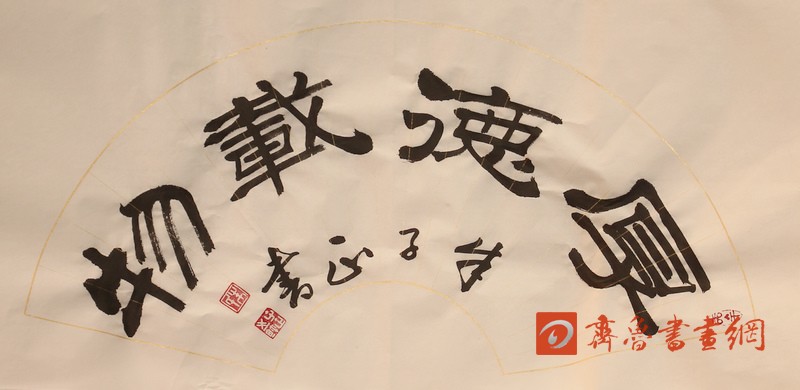 厚德載物
子正書
齊魯書畫網